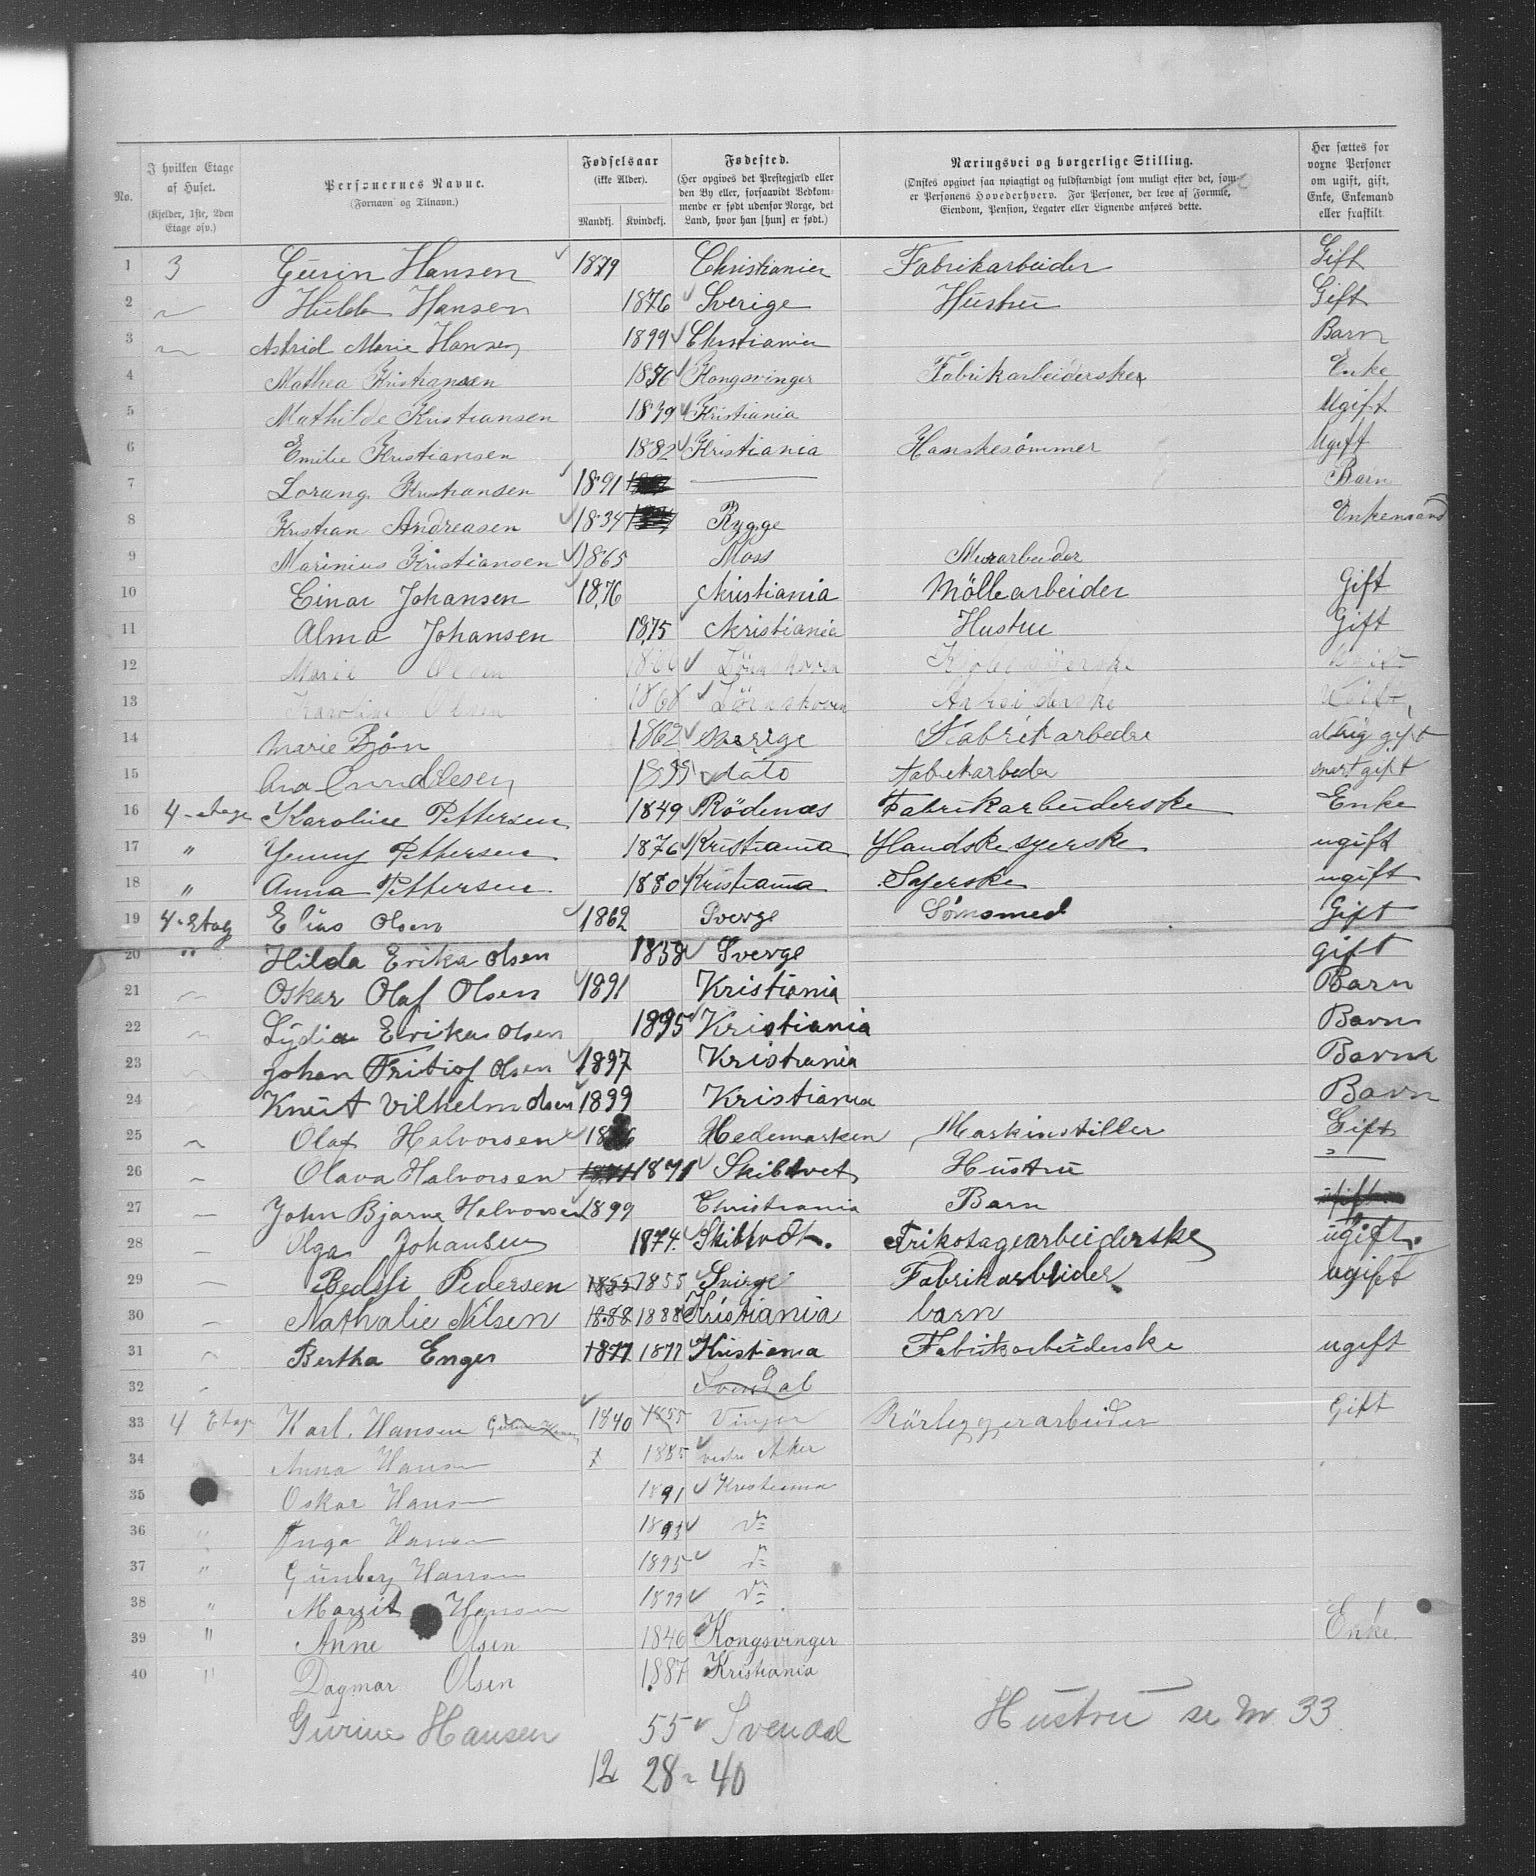 No.
I hvilken Etage af Huset.
(Kjelder, 1ste, 2den Etage osv.)
Personernes Navne.
(Fornavn og Tilnavn.)
Fødselsaar
(ikke Alder).
Mandkj. Kvindekj.
Fødested.
(Her opgives det Prestegjæld eller den By eller, forsaavidt Vedkommende er født udenfor Norge, det Land, hvor han [hun] er født.)
Næringsvei og borgerlige Stilling.
(Ønskes opgivet saa nøiagtigt og fuldstændigt som muligt efter det, som er Personens Hovederhverv. For Personer, der leve af Formue, Eiendom, Pension, Legater eller Lignende anføres dette.
Her sættes for voxne Personer om ugift, gift, Enke, Enkemand eller fraskilt.
1 3 Hansen 1879 Christiania Fabrikarbeider Gift
2 Hulda Hansen 1876 Sverige Hustru Gift
3 Astrid Marie Hansen 1899 Christiania Barn
4 Mathea Kristiansen Kongsvinger Fabrikarbeiderske Enke
5 Mathilde Kristiansen Kristiania Ugift
6 Emilie Kristiansen 1882 Kristiania Hanskesömmer Ugift
7 Lorang Kristiansen 1891 Barn
8 Kristian Andreasen 1834 Rygge Enkemand
9 Marinius Kristiansen 1865 Moss Murarbeider
10 Einar Johansen 1876 Kristiania Möllearbeider Gift
11 Alma Johansen 1875 Kristiania Hustru Gift
12 Marie Olsen Lörenskoven
13 Karoline Olsen 1868 Lörenskoven Arbeiderske
14 Marie Bjön 1862 Sverige Fabrikarbedre aldrig gift
15 dato fabrikarbeder gift
16 4-etage Karoline Pettersen 1849 Rödenæs Fabrikarbeiderske Enke
17 " Yenny Pettersen 1876 Kristiania Handskesyerske ugift
18 " Anna Pettersen 1880 Kristiania Syerske ugift
19 4-Etag Elias Olsen 1862 Sverge Gift
20 " Hilda Erika Olsen 1858 Sverge gift
21 Oskar Olaf Olsen 1891 Kristiania Barn
22 Lydia Erika Olsen 1895 Kristiania Barn
23 Johan Fritiof Olsen 1897 Kristiania Barn
24 Knut Vilhelm Olsen 1899 Kristiania Barn
25 Olaf Halvorsen Hedemarken Maskinstiller Gift
26 Olava Halvorsen 1871 Skibtvet Hustru "
27 John Bjarne Halvorsen 1899 Christiania Barn
28 Olga Johansen 1874. Skibtvdt. Trikotagearbeiderske ugift.
29 Pedersen 1855 1855 Svirge Fabrikarbeider ugift
30 Nathalie Nilsen 1888 1888 Kristiania barn
31 Bertha Enger 1877 1877 Kristiania Fabrikarbeiderske ugift
32 Svendal
33 4 Etag Karl Hansen 1840 1855 Vinger Rörleggerarbeider Gift
34 Anna Hansen 1885 Vestre Aker
35 Oskar Hansen 1891 Kristiania
36 Inga Hansen 1893 do
37 " Hansen 1895 do
38 " Margit Hansen 1899 do
39 " Anne Olsen 1846 Kongsvinger Enke.
40 " Dagmar Olsen 1887 Kristiania
Gurine Hansen 55 Svendal Hustru se Nr 33
12 28 - 40